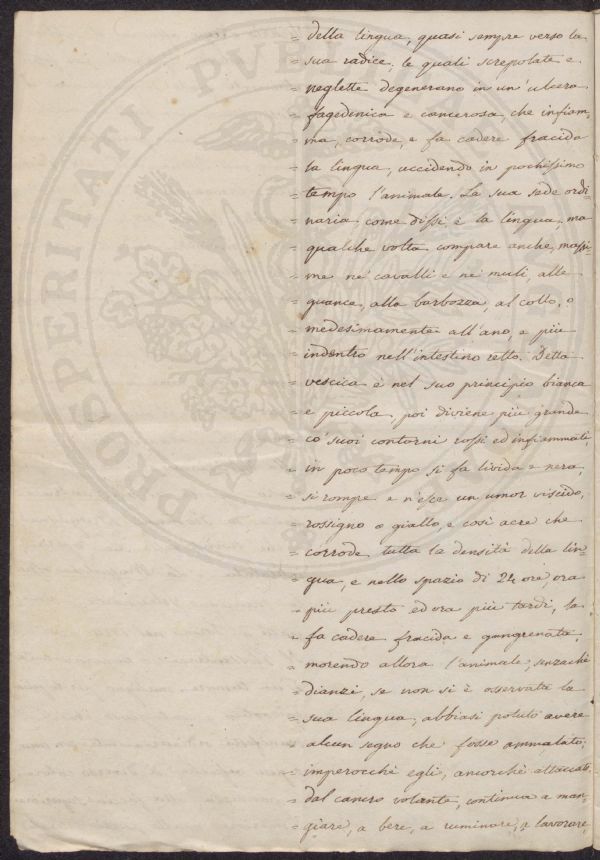 PROSPERITATI PUBLICAE
= della lingua, quasi sempre verso la
= sua radice; le quali screpolate e
= neglette degenerano in un'ulcera
= fagedenica e cancerosa, che infiam-
= ma, corrode, e fa cadere fracida
= la lingua, uccidendo in pochissimo
= tempo l'animale. La sua sede ordi-
= naria, come dissi, è la lingua, ma
= qualche volta compare anche, massi-
= me ne' cavalli e ne' muli, alle
= guance, alla barbozza, al collo, o
= medesimamente all'ano, e più
= indentro nell'intestino retto. Detta
= vescica è nel suo principio bianca
= e piccola, poi diviene più grande
= co' suoi contorni rossi ed infiammati,
= in poco tempo si fa livida e nera,
= si rompe e n'esce un umor viscido,
= rossigno o giallo, e così acre che
= corrode tutta la densità della lin-
= gua, e nello spazio di 24 ore, ora
= più presto ed ora più tardi, la
= fa cadere fracida e gangrenata,
= morendo allora l'animale, senzachè
= dianzi, se non si è osservata la
= sua lingua, abbiasi potuto avere
= alcun segno che fosse ammalato;
= imperocchè egli, ancorchè attaccato
= dal cancro volante, continua a man-
= giare, a bere, a ruminare, a lavorare,